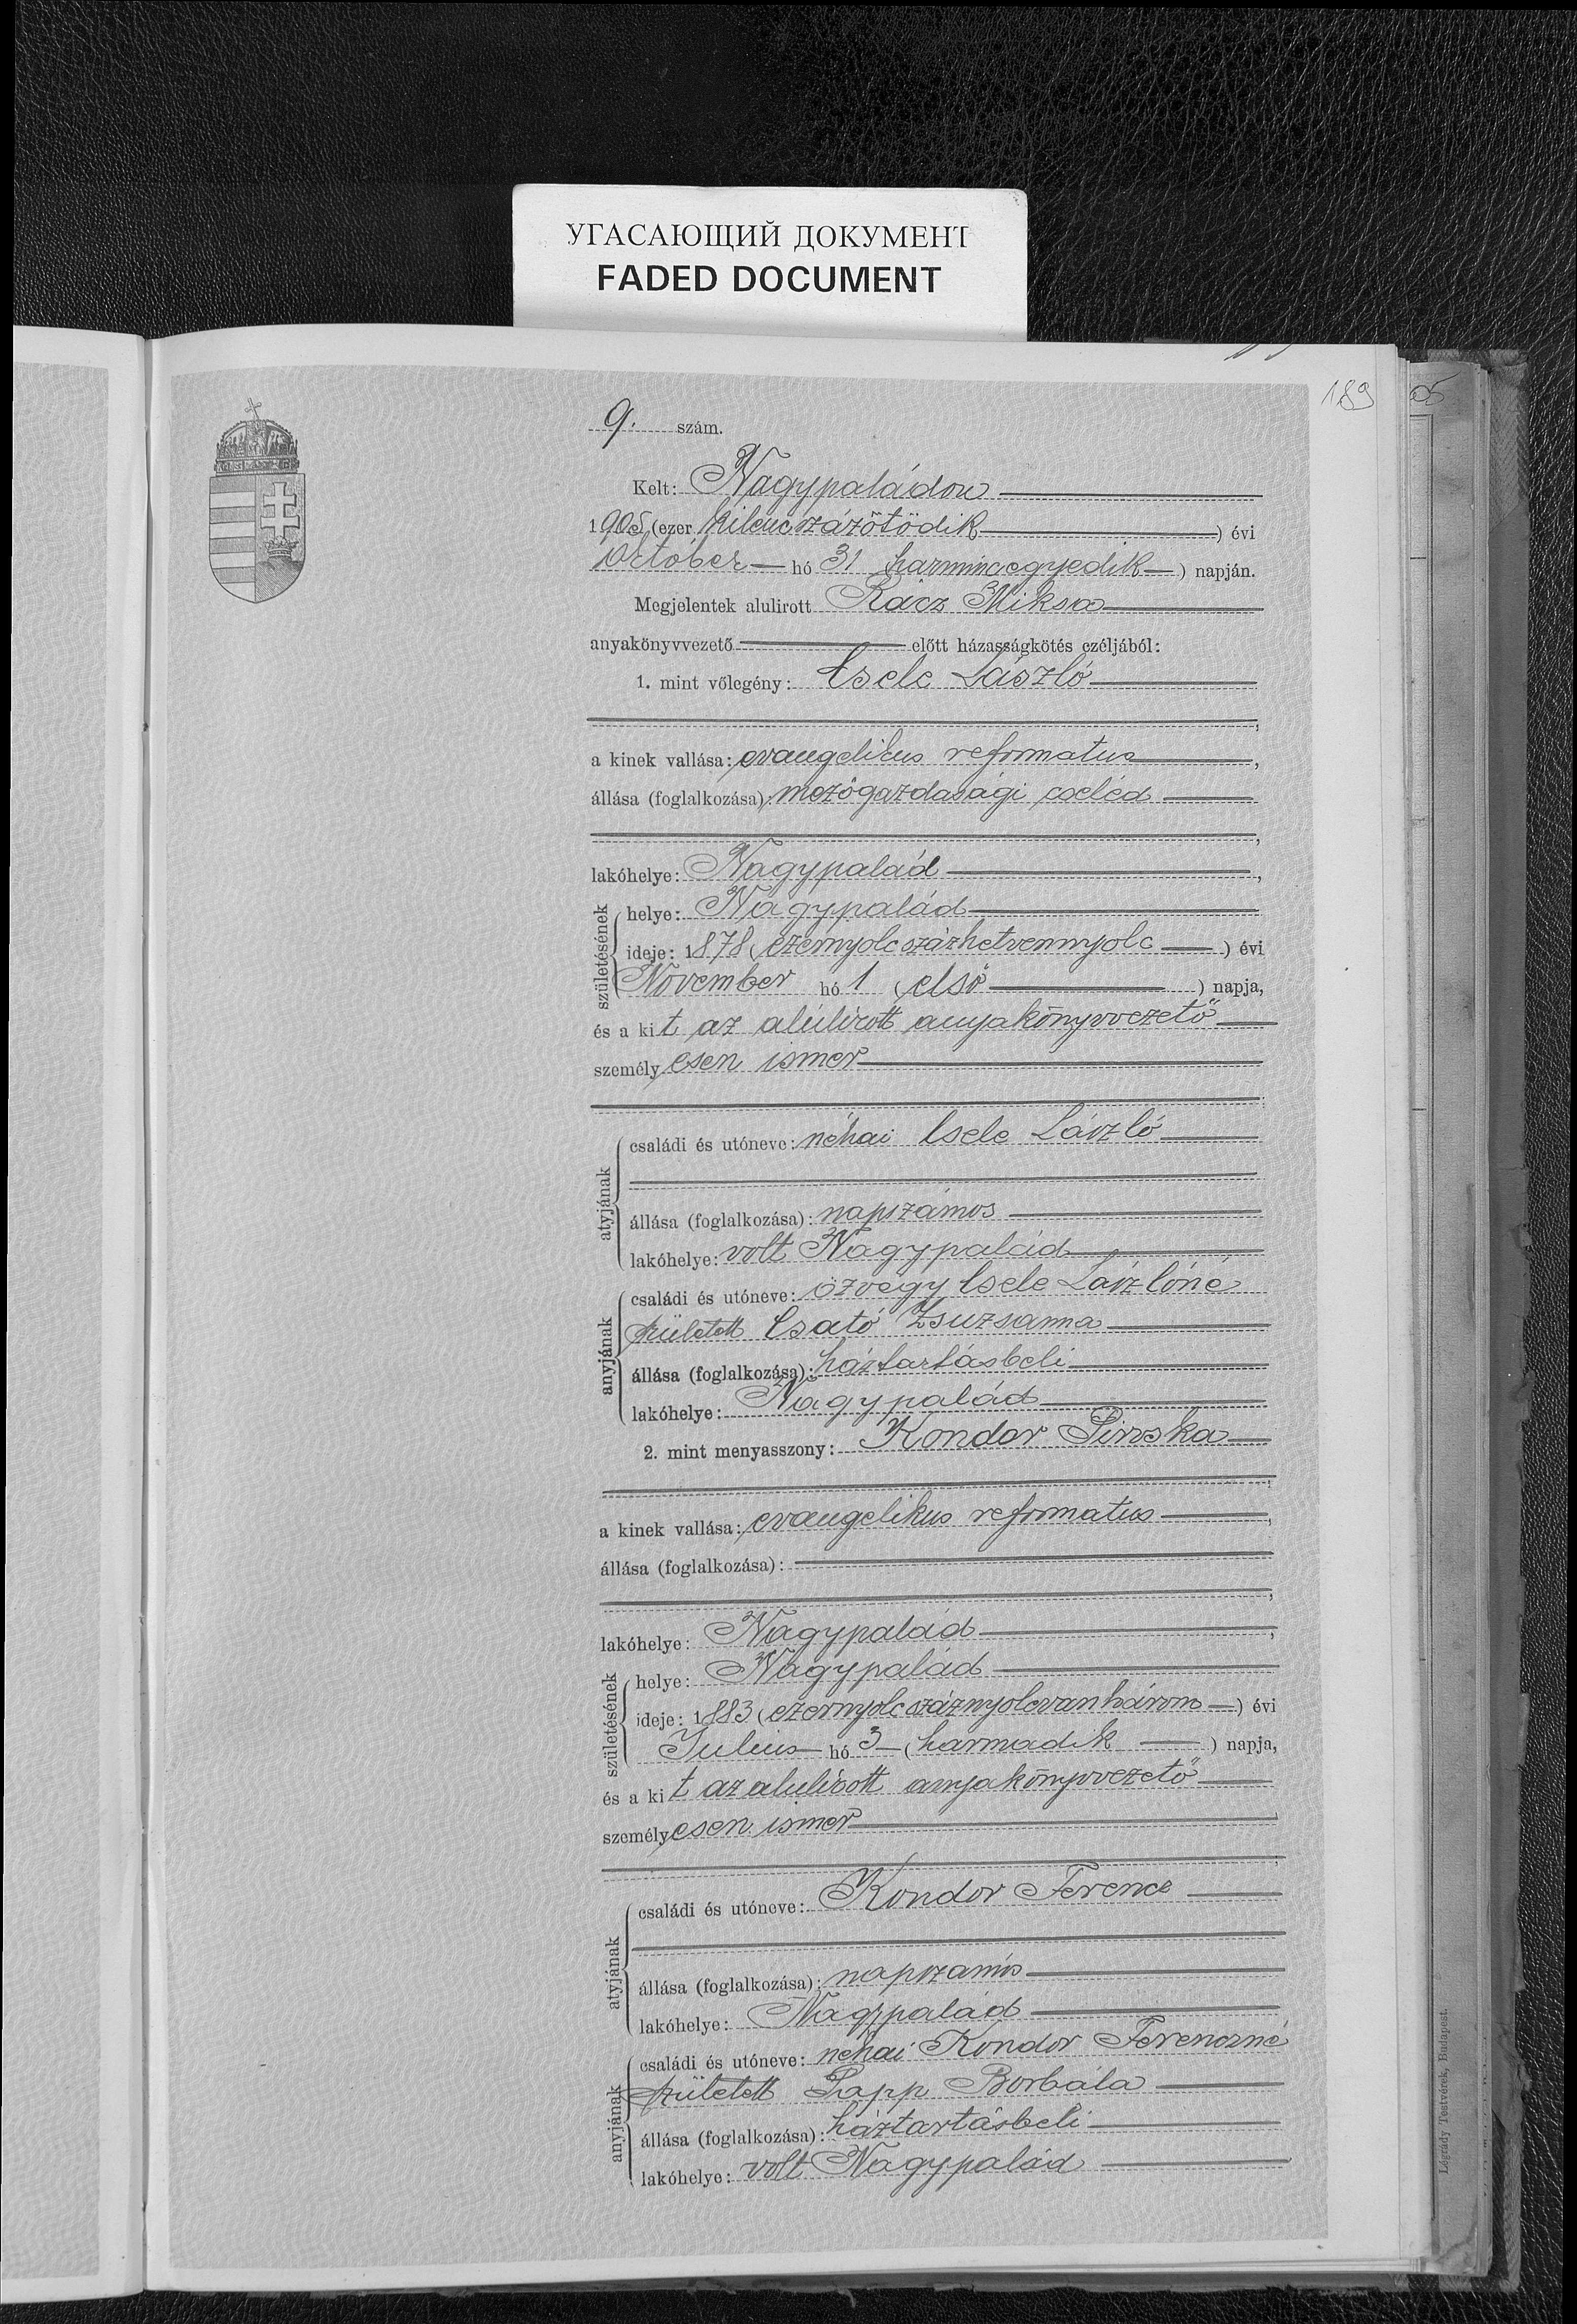 УГАСАЮЩИЙ ДОКУМЕНТ
FADED DOCUMENT
189
9. szám.
Kelt: Nagypaládon
1905 (ezer kilencszázötödik) évi
October hó 31 harmincegyedik) napján.
Megjelentek alulirott Rácz Miksa
anyakönyvvezető előtt házasságkötés czéljából:
1. mint vőlegény: Csele László
a kinek vallása: evangelikus reformatus,
állása (foglalkozása): mezőgazdasági cseléd
lakóhelye: Nagypalád,
születésének
helye: Nagypalád
ideje: 1878 (ezernyolcszázhetvennyolc) évi
November hó 1 (első) napja,
és a kit az alúlirott anyakönyvvezető
személyesen ismer
atyjának
családi és utóneve: néhai Csele László
állása (foglalkozása): napszámos
lakóhelye: volt Nagypalád
anyjának
családi és utóneve: özvegy Csele Lászlóné
született Csató Zsuzsanna
állása (foglalkozása): háztartásbeli
lakóhelye: Nagypalád
2. mint menyasszony: Kondor Piroska
a kinek vallása: evangelikus reformatus,
állása (foglalkozása):
lakóhelye: Nagypalád,
születésének
helye: Nagypalád
ideje: 1883 (ezernyolcszáznyolcvanhárom) évi
Julius hó 3 (harmadik) napja,
és a kit az alulirott anyakönyvvezető
személyesen ismer
atyjának
családi és utóneve: Kondor Ferencz
állása (foglalkozása): napszámos
lakóhelye: Nagypalád
anyjának
családi és utóneve: néhai Kondor Ferenczné
született Papp Borbála
állása (foglalkozása): háztartásbeli
lakóhelye: volt Nagypalád
Légrády Testvérek, Budapest.